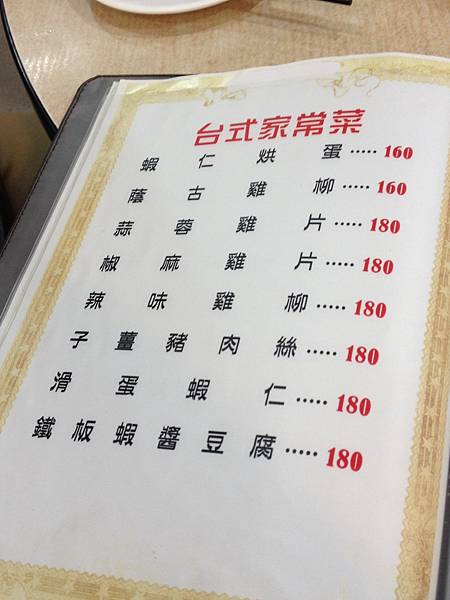 台式家常菜
蝦仁烘蛋·····160
蔭古雞柳·····160
蒜蓉雞片·····180
椒麻雞片·····180
辣味雞柳·····180
子薑豬肉絲·····180
滑蛋蝦仁·····180
鐵板蝦醬豆腐·····180